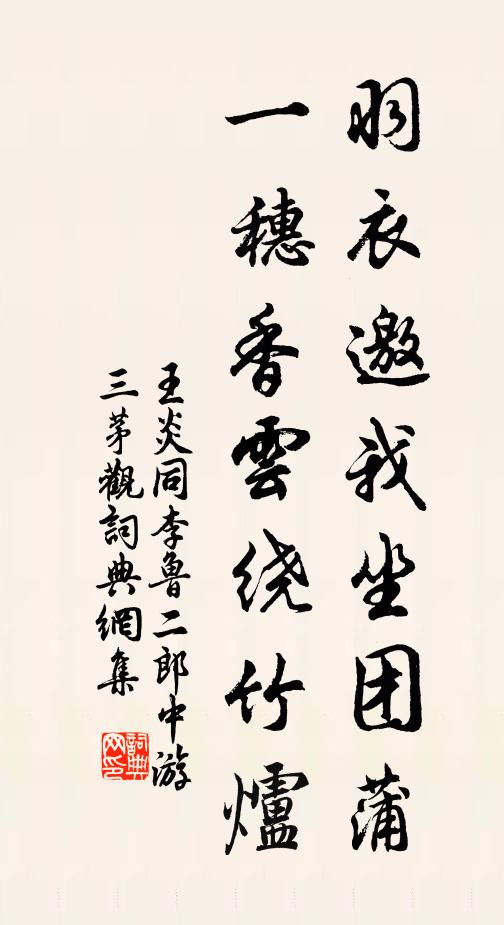 羽衣邀我坐团蒲
一穗香雲绕竹爐
王炎同李鲁二郎中游
三茅觀詞典網集
詞典
网印